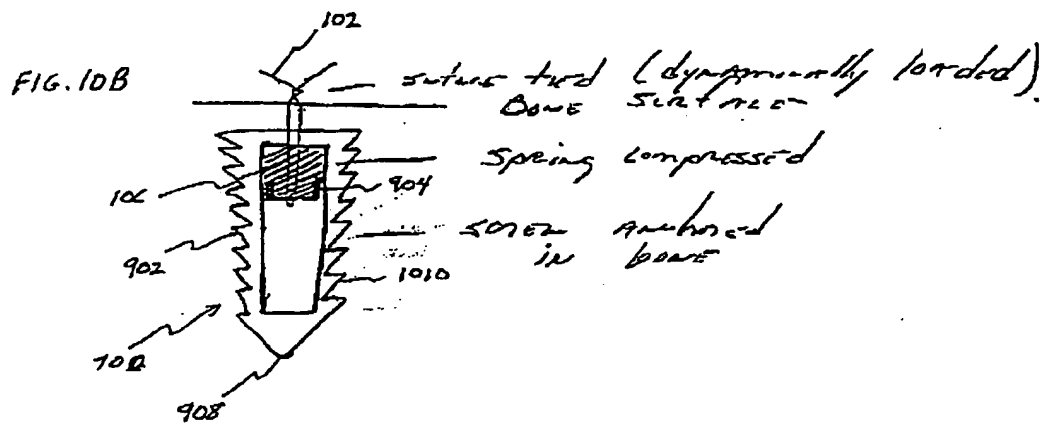 102
FIG. 10B
suture tied (dynamically loaded)
Bone surface
spring compressed
106
904
screw anchored
in bone
902
1010
700
908